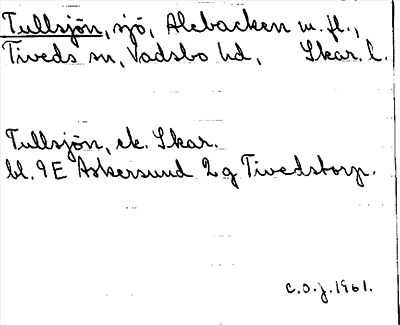 Tullsjön, sjö, Alebacken m. fl.,
Tiveds sn, Vadsbo hd, Skar. l.
Tullsjön, ek. Skar.
bl. 9E Askersund 2g Tivedstorp.
C.O.J. 1961.